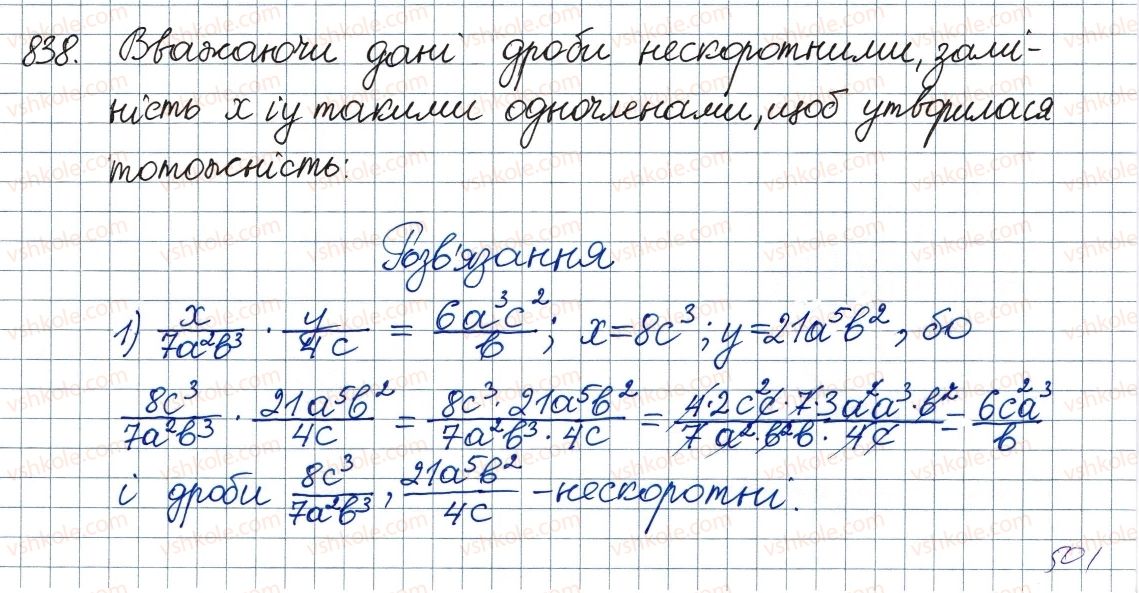 838. Вважаючи дані дроби нескоротними, замі-
ність x і y такими одночленами, щоб утворилася
тотожність:
Розв'язання
1) x/7a²b³ · y/4c = 6a³c²/b; x=8c³; y=21a⁵b², бо
8c³/7a²b³ · 21a⁵b²/4c = 8c³·21a⁵b²/7a²b³·4c = 4·2c²c·7·3a²a³·b²/7a²·b²b·4c = 6c²a³/b
і дроби 8c³/7a²b³, 21a⁵b²/4c - нескоротні.
501